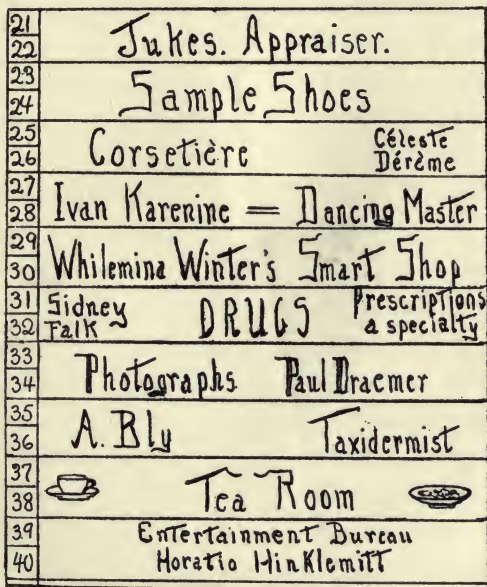 21
22 Jukes. Appraiser.
23
24 Sample Shoes
25
26 Corsetière Céleste
Dérème
27
28 Ivan Karenine = Dancing Master
29
30 Whilemina Winter's Smart Shop
31 Sidney DRUGS Prescriptions
32 Falk a specialty
33
34 Photographs Paul Draemer
35
36 A. Bly Taxidermist
37
38 Tea Room
39 Entertainment Bureau
40 Horatio Hinklemitt